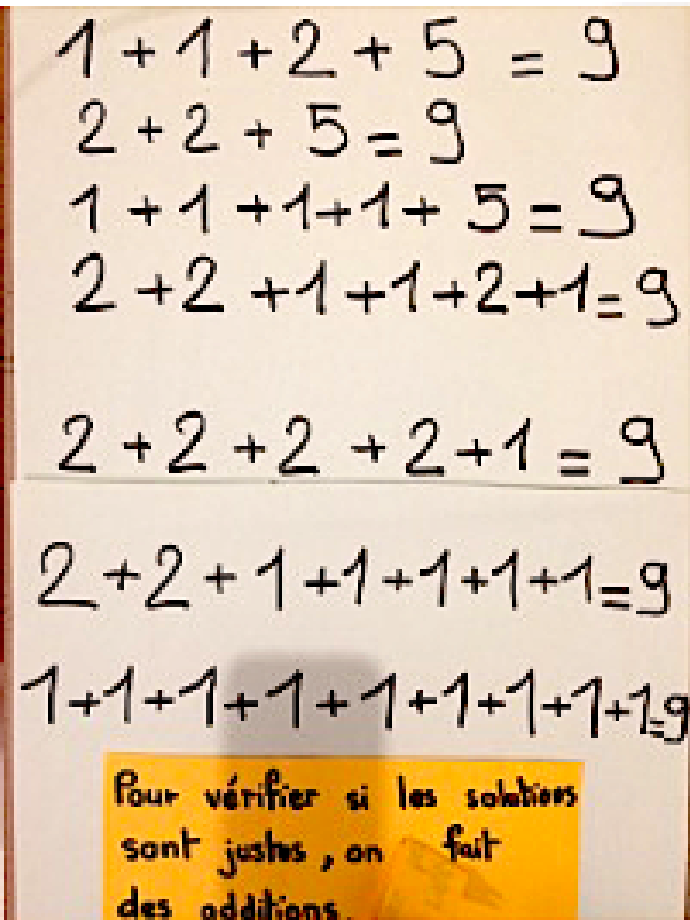 1 + 1 + 2 + 5 = 9
2 + 2 + 5 = 9
1 + 1 + 1 + 1 + 5 = 9
2 + 2 + 1 + 1 + 2 + 1 = 9
2 + 2 + 2 + 2 + 1 = 9
2 + 2 + 1 + 1 + 1 + 1 + 1 = 9
1 + 1 + 1 + 1 + 1 + 1 + 1 + 1 + 1 = 9
Pour vérifier si les solutions
sont justes, on fait
des additions.